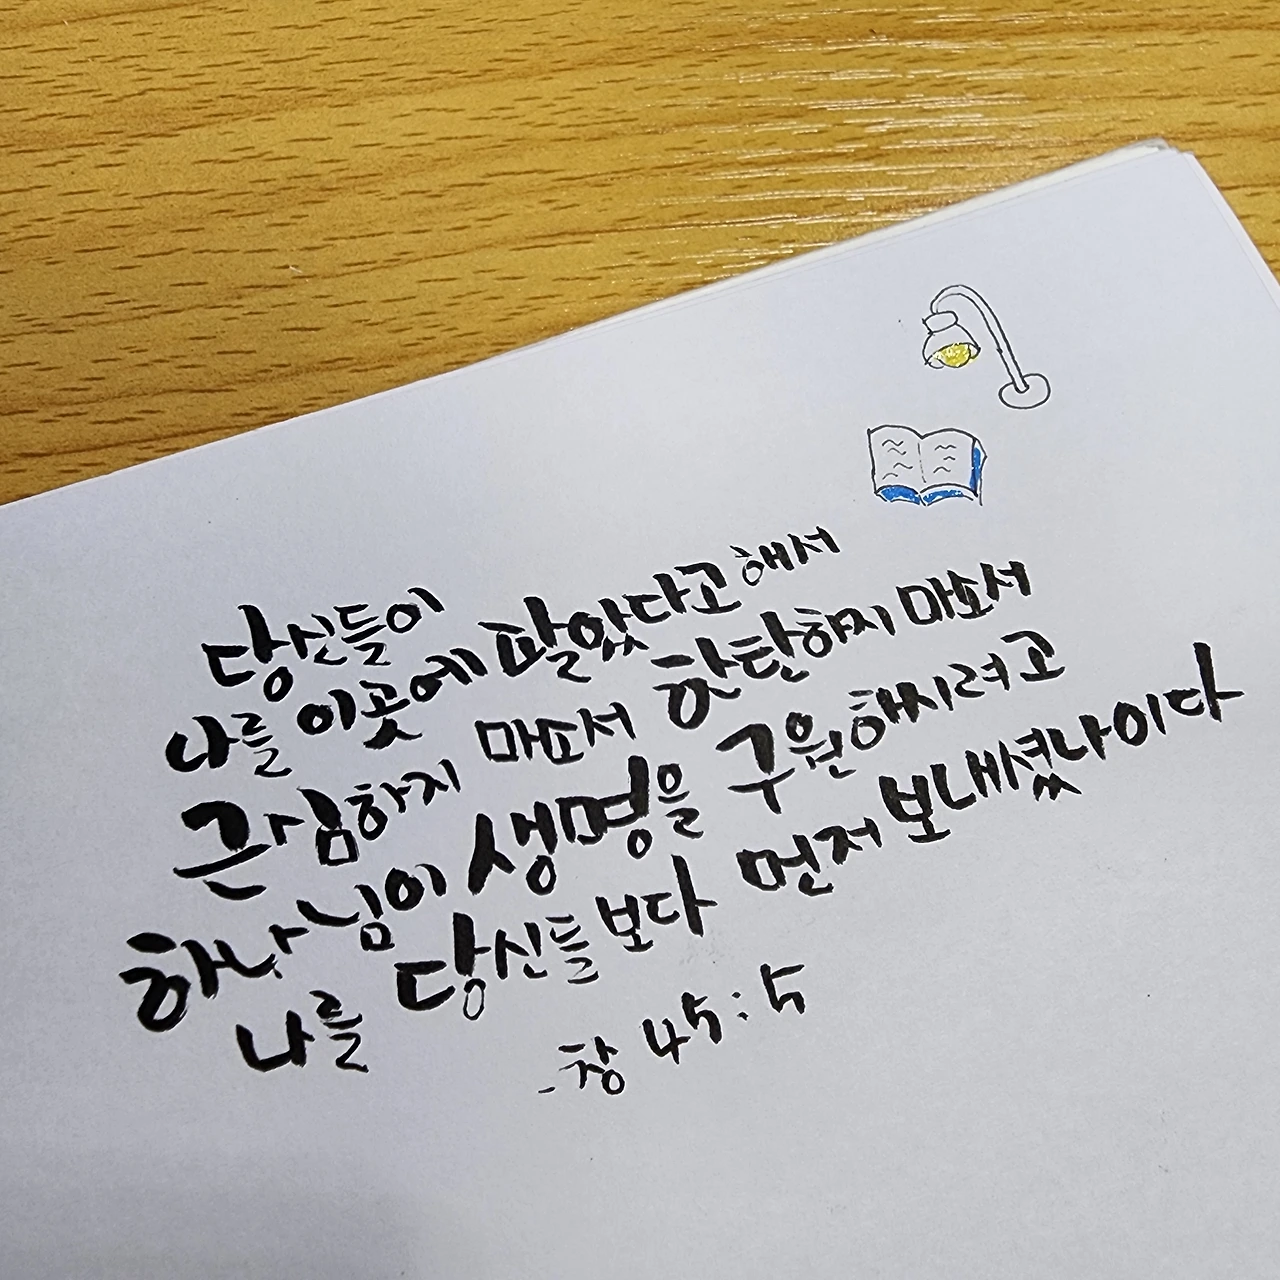 당신들이
나를 이곳에 팔았다고 해서
근심하지 마소서 한탄하지 마소서
하나님이 생명을 구원하시려고
나를 당신들보다 먼저 보내셨나이다
- 창 45:5